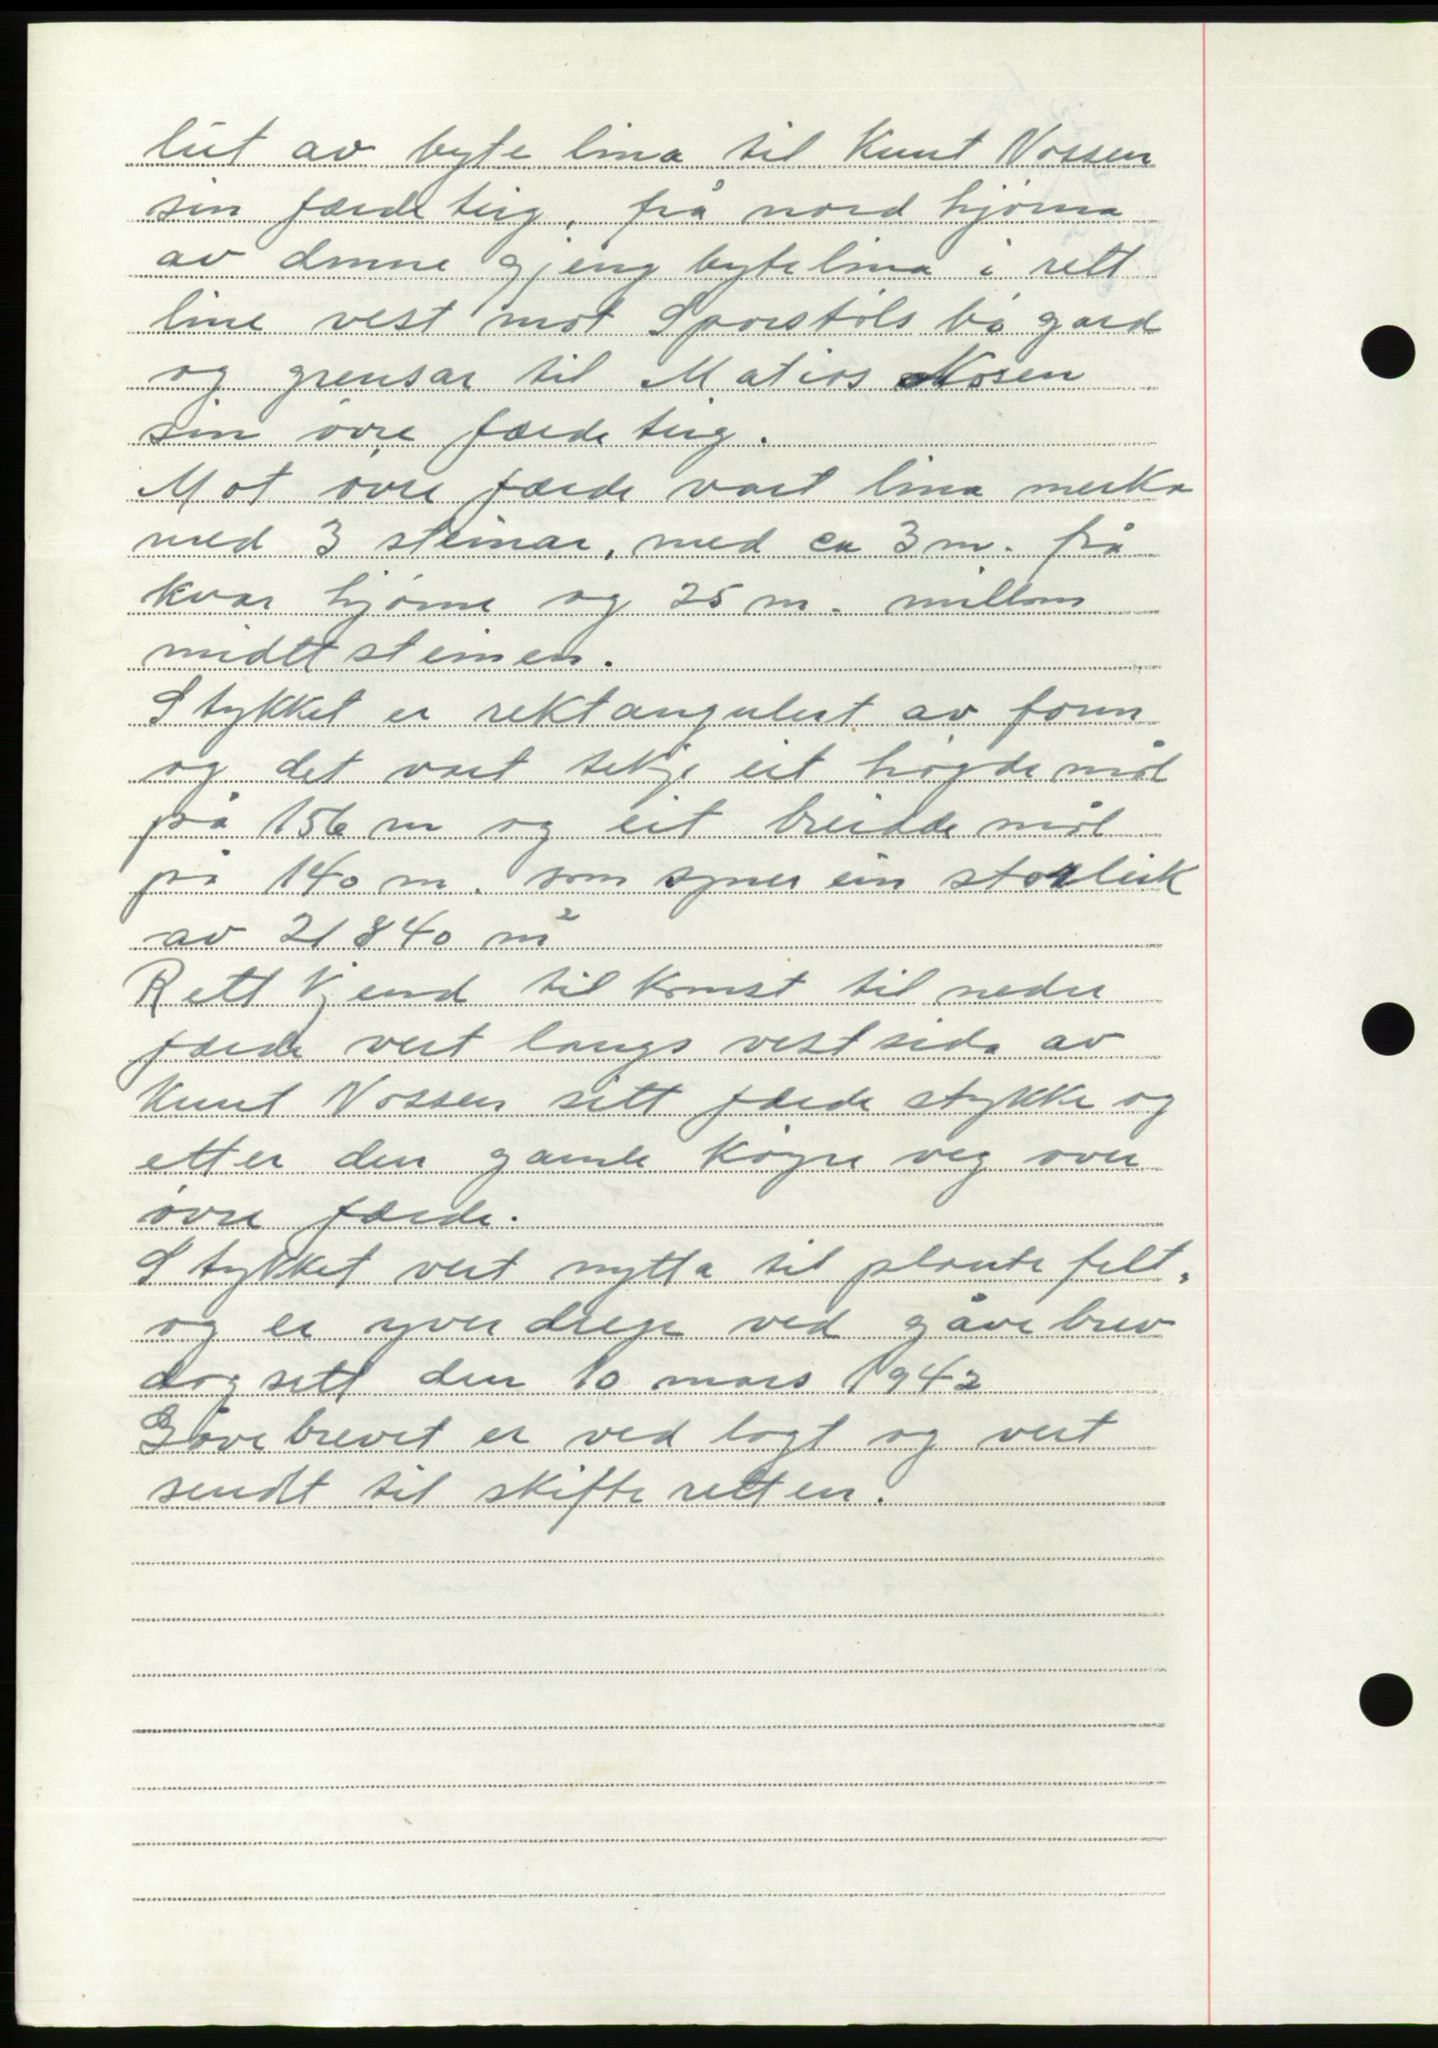 lut av byte lina til Knut Nossen
sin færde teig, frå nord hjørna
av denne gjeng byte lina i rett
line vest mot Sporstøls bø gard
og grensar til Matios Nosen
sin øvre færde teig.
Mot øvre færde vart lina merka
med 3 steinar, med ca 3 m. frå
kvar hjørne og 25 m. millom
midtsteinen.
Stykket er rektangulert av form
og det vart tekje eit høgde mål
på 156 m og eit breidde mål
på 140 m. som syner ein storleik
av 21840 m²
Rett kjend tilkomst til nedre
færde vert langs vestsida av
Knut Nossen sitt færde stykke og
etter den gamle køyre veg over
øvre færde.
Stykket vert nytta til plante felt,
og er yver drege ved gåve brev
dagsett den 10 mars 1942
Gåve brevet er ved lagt og vert
sendt til skifte retten.